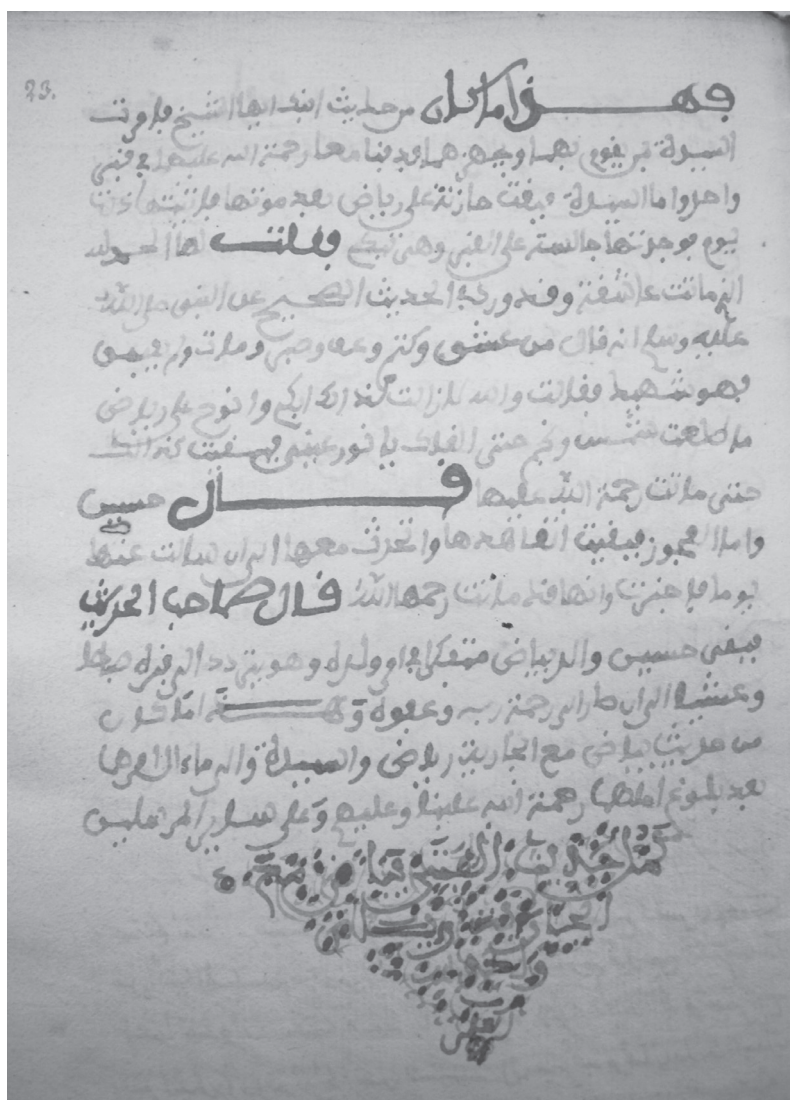 23.
فهذا ما كان من حديث ابنك ايها الشيخ فامرت
السيدة من يقوم بهما وجهزهما فدفنا معا رحمة الله عليهما في قبر
واحد واما السيدة فبقت حازنة على رياض بعد موتها فاتيتها ذات
يوم فوجدتها جالسة على القبر وهي تبكي فقلت لها الحمد لله
الذي ماتت عاشقة وقد ورد في الحديث الصحيح عن النبي صلى الله
عليه وسلم انه قال من عشق وكتم وعف وصبر ومات ولم يفسق
فهو شهيد فقالت والله لا زالت كذلك ابكي وانوح على رياض
ما طلعت شمس ونجم حتى الفاك يا نور عيني فبقيت كذلك
حتى ماتت رحمة الله عليها قال حسين
واما العجوز فبقيت اتفاقدها واتحدث معها الى ان سالت عنها
يوما فاخبرت وانها قد ماتت رحمها الله قال صاحب الحديث
فبقى حسين والد بياض متفكرا في امر ولده وهو يتردد الى قبره صباحا
وعشيا الى ان صار الى رحمة ربه وعفوه وهذا ما كان
من حديث بياض مع الجارية رياض والسيدة وما الى امرها
بعد بلوغ املها رحمة الله علينا وعليهم وعلى ساير المسلمين